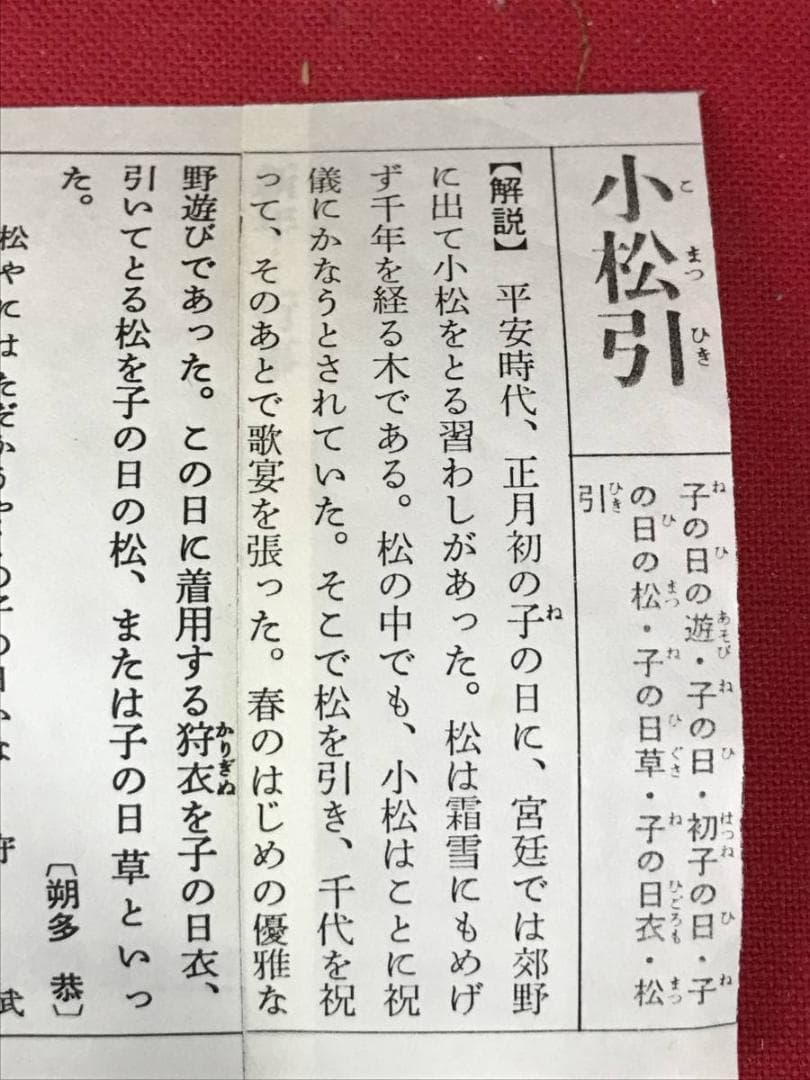 小松引
こまつひき
子の日の遊・子の日・初子の日・子
の日の松・子の日草・子の日衣・松
引
【解説】 平安時代、正月初の子の日に、宮廷では郊野
に出て小松をとる習わしがあった。松は霜雪にもめげ
ず千年を経る木である。松の中でも、小松はことに祝
儀にかなうとされていた。そこで松を引き、千代を祝
って、そのあとで歌宴を張った。春のはじめの優雅な
野遊びであった。この日に着用する狩衣を子の日衣、
引いてとる松を子の日の松、または子の日草といっ
た。
〔朔多 恭〕